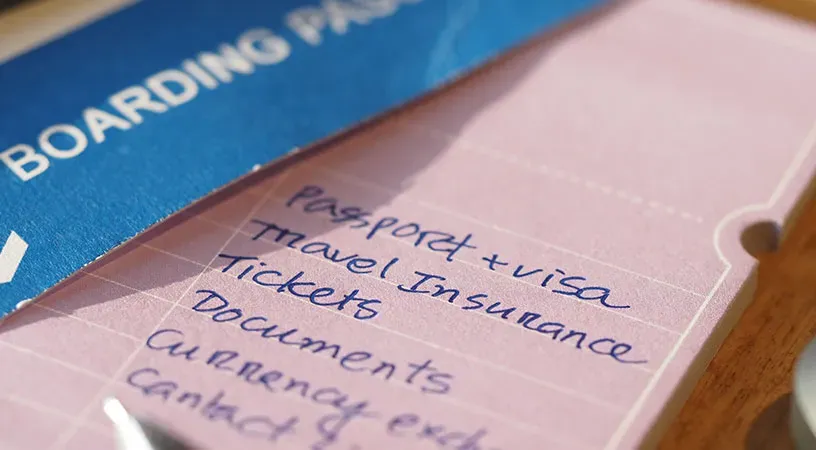 BOARDING PASS
Passport + visa
Travel Insurance
Tickets
Documents
Currency
Contact